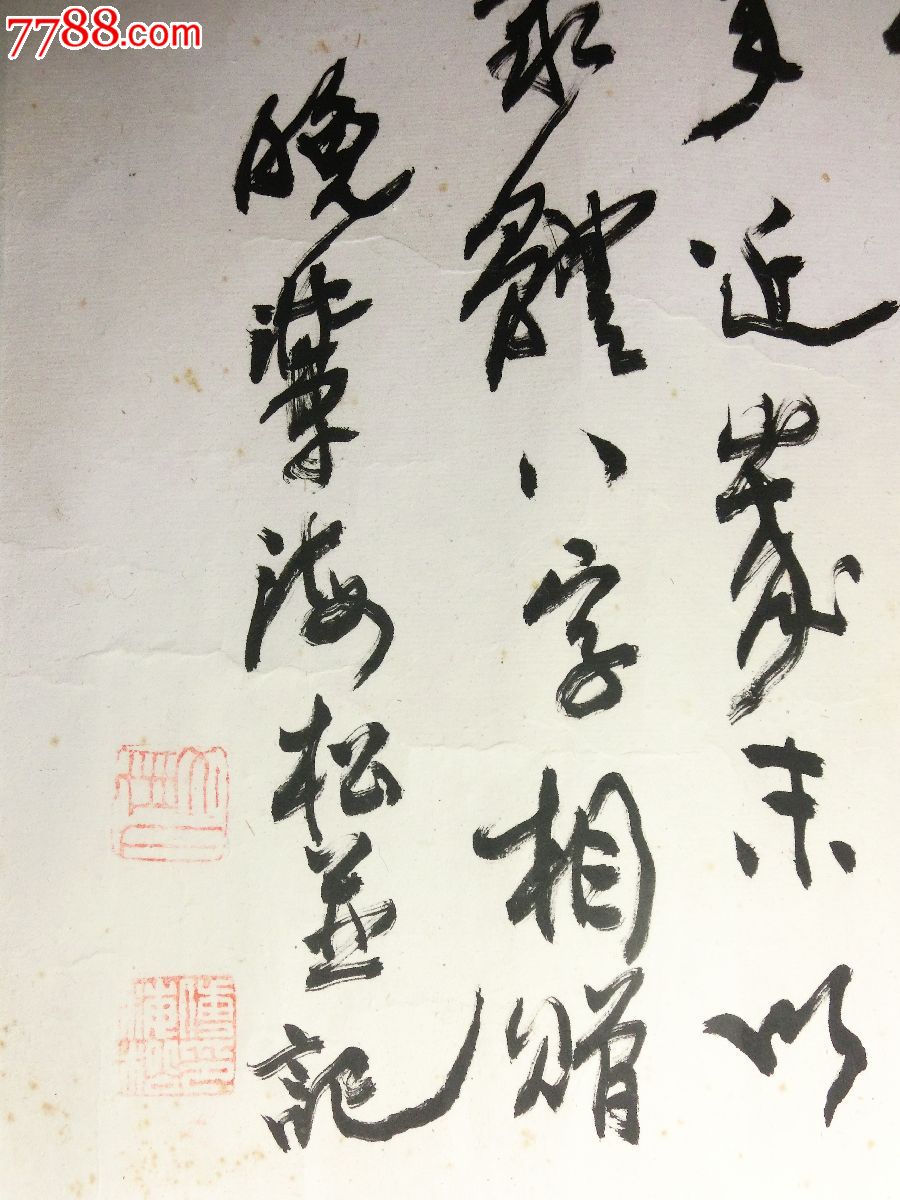 7788.com
近歲末以
體八字相贈
晚學海松并記